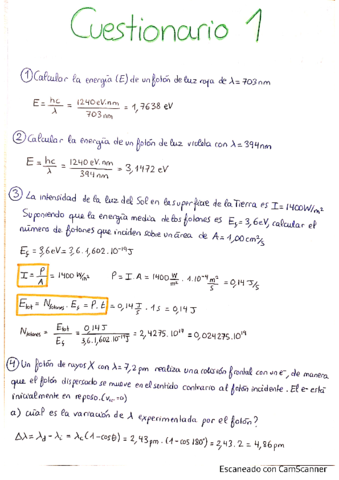 Cuestionario 1
① Calcular la energía (E) de un fotón de luz roja de λ = 703 nm
E = hc/λ = 1240 eV.nm/703 nm = 1,7638 eV
② Calcular la energía de un fotón de luz violeta con λ = 394 nm
E = hc/λ = 1240 eV.nm/394 nm = 3,1472 eV
③ La intensidad de la luz del Sol en la superficie de la Tierra es I = 1400 W/m²
Suponiendo que la energía media de los fotones es E_f = 3,6 eV, calcular el
número de fotones que inciden sobre un área de A = 1,00 cm²/s
E_f = 3,6 eV = 3,6 . 1,602 . 10⁻¹⁹ J
I = P/A = 1400 W/m² P = I . A = 1400 W/m² . 1 . 10⁻⁴ m²/s = 0,14 J/s
E_tot = N_fotones . E_f = P . t = 0,14 J/s . 1 s = 0,14 J
N_fotones = E_tot/E_f = 0,14 J/3,6 . 1,602 . 10⁻¹⁹ J = 2,4275 . 10¹⁷ = 0,024275 . 10¹⁹
④ Un fotón de rayos X con λ = 7,2 pm realiza una colisión frontal con un e⁻, de manera
que el fotón dispersado se mueve en el sentido contrario al fotón incidente. El e⁻ está
inicialmente en reposo.
a) ¿cuál es la variación de λ experimentada por el fotón?
Δλ = λd - λi = λc (1 - cosθ) = 2,43 pm . (1 - cos 180°) = 2,43 . 2 = 4,86 pm
Escaneado con CamScanner